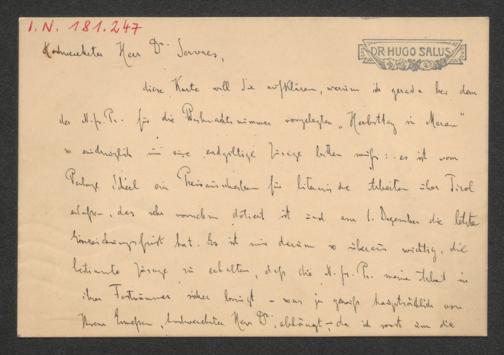 I.N. 181.247
DR HUGO SALUS
Hochverehrter Herr Dr. Servaes,
diese Karte will Sie aufklären, warum ich gerade bei dem
der N. fr. Pr. für die Weihnachtsnummer vorgelegten „Herbsttag in Meran“
so eindringlich um eine endgültige Zusage bitten muß: es ist vom
Verlage ein Preisausschreiben für literarische Arbeiten über Tirol
erlassen, das sehr vornehm dotiert ist und am 1. Dezember die letzte
Einreichungsfrist hat. Es ist mir darum so überaus wichtig, die
bestimmte Zusage zu erhalten, daß die N. fr. Pr. meine Arbeit in
ihrer Festnummer sicher bringt – was ja gewiß hauptsächlich von
Ihrem Ermessen, hochverehrter Herr Dr., abhängt – da ich sonst um die